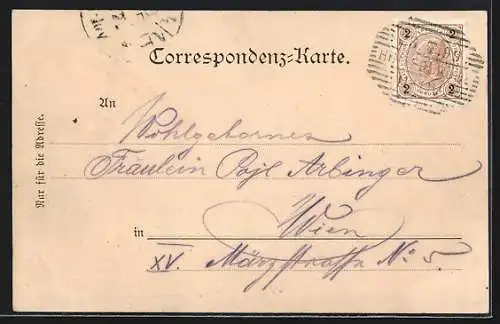 Correspondenz-Karte.
2 2
2 2
An
Wohlgebornes
Fräulein Arbinger
Wien
in
XV. Märzstrasse No. 5.
Nur für die Adresse.